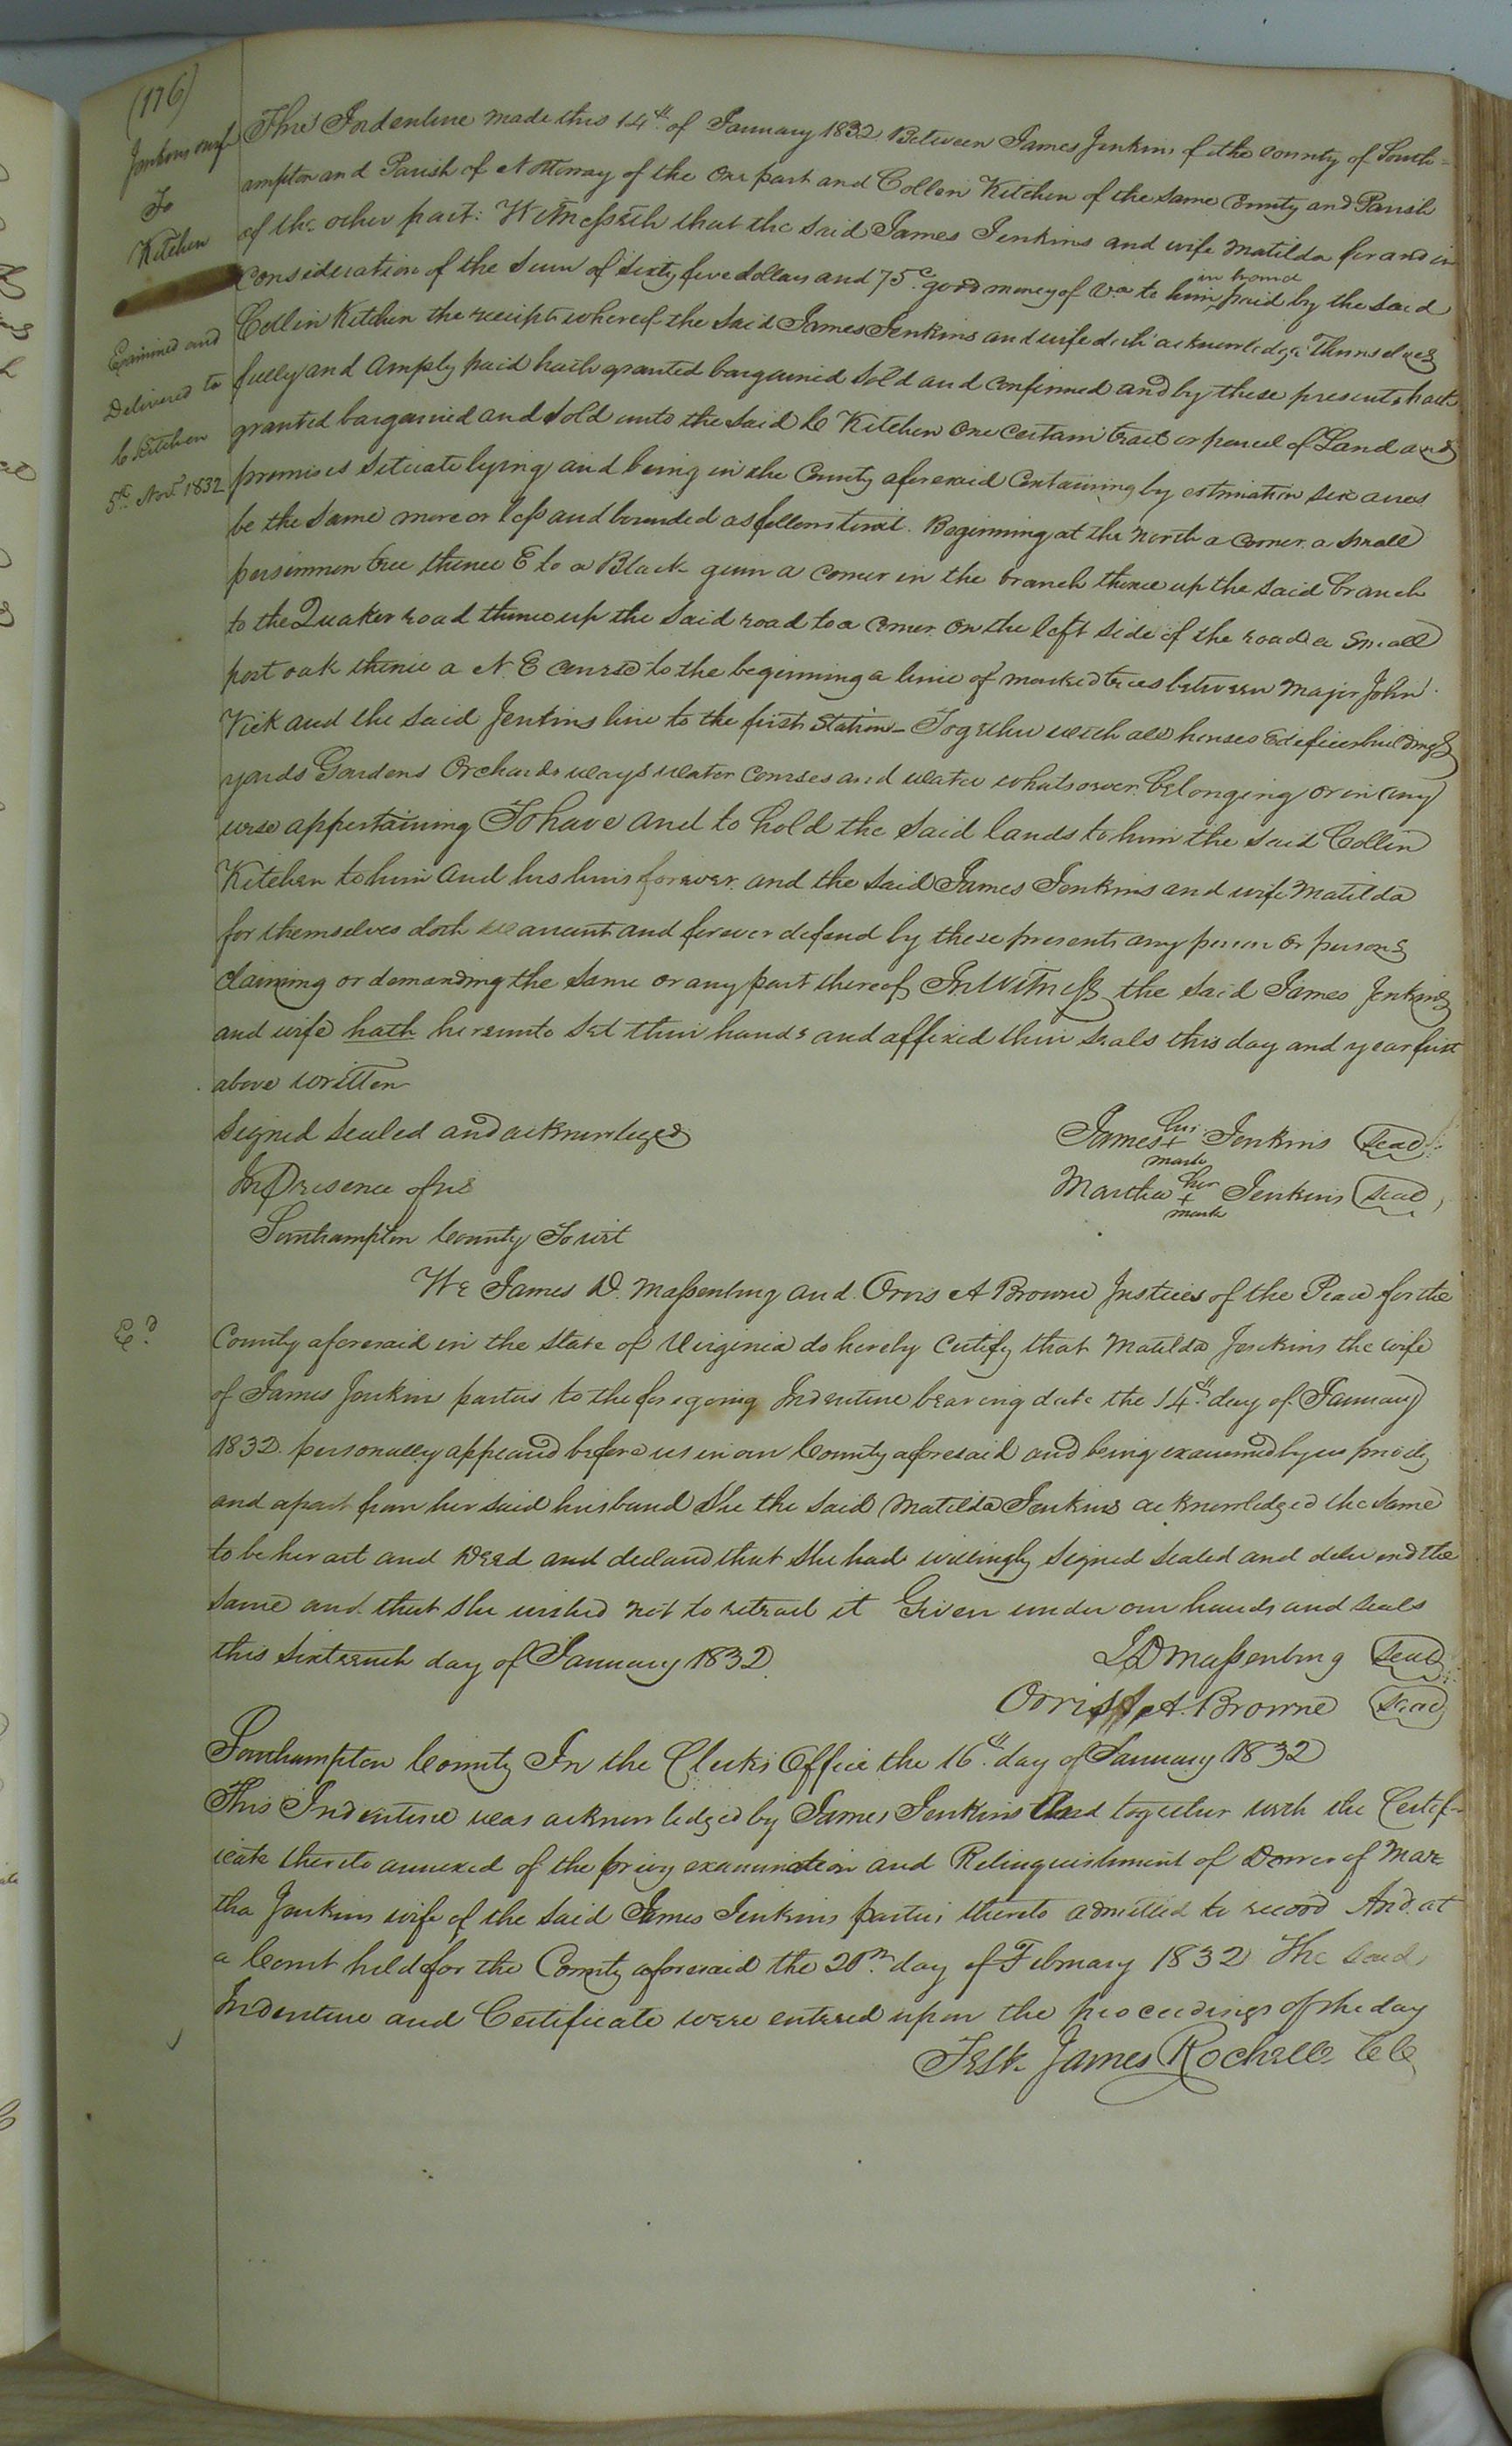 (176)
Jenkins & wife
To
Kitchen
Examined and
Delivered to
C Kitchen
5th Nov. 1832
This Indenture made this 14th of January 1832 Between James Jenkins of the county of South-
ampton and Parish of Nottoway of the one part and Collin Kitchen of the same County and Parish
of the other part: Witnesseth that the said James Jenkins and wife Matilda for and in
consideration of the sum of sixty five dollars and 75c. good money of Va. to him in hand paid by the said
Collin Kitchen the receipt whereof the said James Jenkins and wife doth acknowledge Themselves
fully and Amply paid hath granted bargained sold and confirmed and by these presents hath
granted bargained and sold unto the said C Kitchen One certain tract or parcel of Land and
premises situate lying and being in the County aforesaid Containing by estimation six acres
be the same more or less and bounded as follows towit. Beginning at the north a corner a small
persimmon tree thence E to a Black gum a corner in the branch thence up the said branch
to the Quaker road thence up the said road to a corner on the left side of the road a small
post oak thence a N. E course to the beginning a line of marked trees between Major John
Vick and the said Jenkins line to the first Station - Together with all houses Edifices buildings
yards Gardens Orchards ways water courses and water whatsoever belonging or in any
wise appertaining To have and to hold the said lands to him the said Collin
Kitchen to him and his heirs forever. and the said James Jenkins and wife Matilda
for themselves doth warrant and forever defend by these presents any person or persons
claiming or demanding the same or any part thereof In Witness the said James Jenkins
and wife hath hereunto set their hands and affixed their seals this day and year first
above written
Signed sealed and acknowleged
In Presence of us
James his + mark Jenkins Seal
Martha her + mark Jenkins Seal
Southampton County To wit
We James D. Massenburg and Orris A Browne Justices of the Peace for the
Ed.
County aforesaid in the State of Virginia do hereby Certify that Matilda Jenkins the wife
of James Jenkins parties to the foregoing Indenture bearing date the 14th day of January
1832. personally appeared before us in our County aforesaid and being examined by us privily
and apart from her said husband She the said Matilda Jenkins acknowledged the same
to be her act and Deed and declared that she had willingly signed sealed and delivered the
same and that she wished not to retract it Given under our hands and seals
this sixteenth day of January 1832.
J D Massenburg Seal
Orris A. Browne Seal
Southampton County In the Clerks Office the 16th day of January 1832
This Indenture was acknowledged by James Jenkins and together with the Certif-
icate thereto annexed of the privy examination and Relinquishment of Dower of Mar-
tha Jenkins wife of the said James Jenkins parties thereto admitted to record And at
a Court held for the County aforesaid the 20th day of February 1832 The said
Indenture and Certificate were entered upon the proceedings of the day
Teste James Rochelle CC